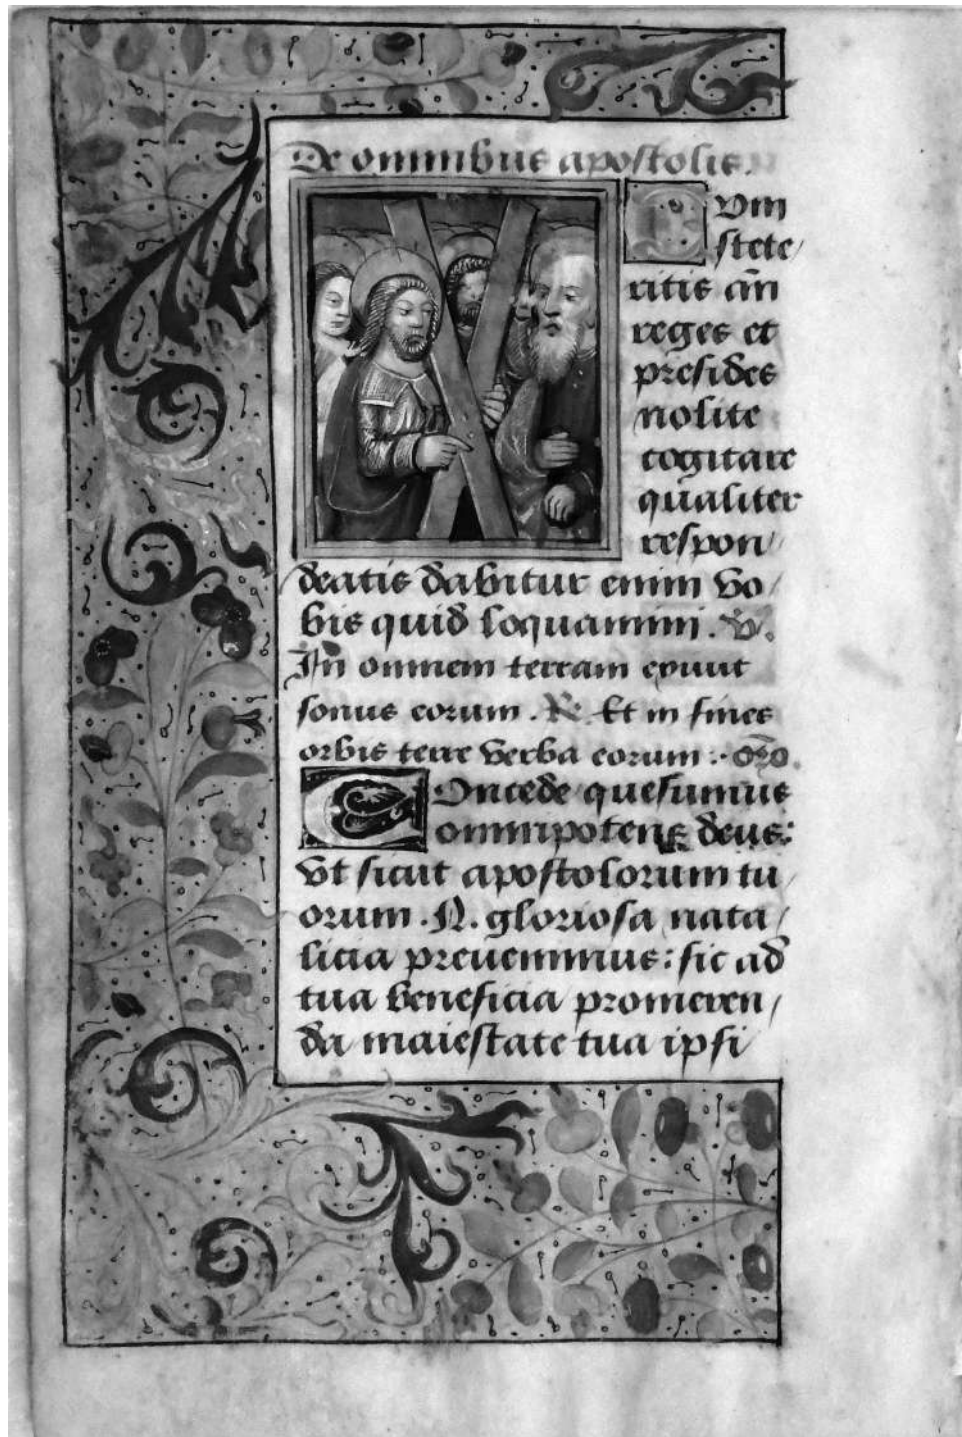 De omnibus apostolis.
Cum
stete/
ritis añ
reges et
presides
nolite
cogitare
qualiter
respon/
deatis dabitur enim vo/
bis quid loquamini. V.
In omnem terram exiuit
sonus eorum. R. Et in fines
orbis terre verba eorum: oro.
Concede quesumus
omnipotens deus:
vt sicut apostolorum tu/
orum .N. gloriosa nata/
licia preuenimus: sic ad
tua beneficia promeren/
da maiestate tua ipsi